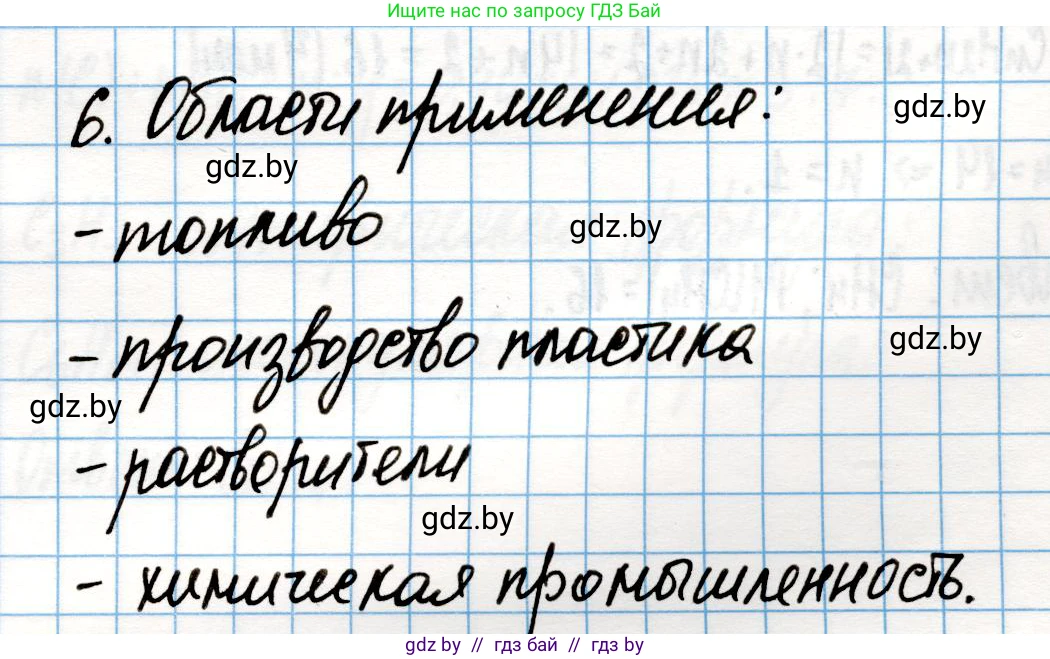 Ищите нас по запросу ГДЗ Бай
6. Области применения:
gdz.by
gdz.by
- топливо
gdz.by
- производство пластика
gdz.by
gdz.by
- растворители
gdz.by
- химическая промышленность.
gdz.by // гдз бай // гдз by